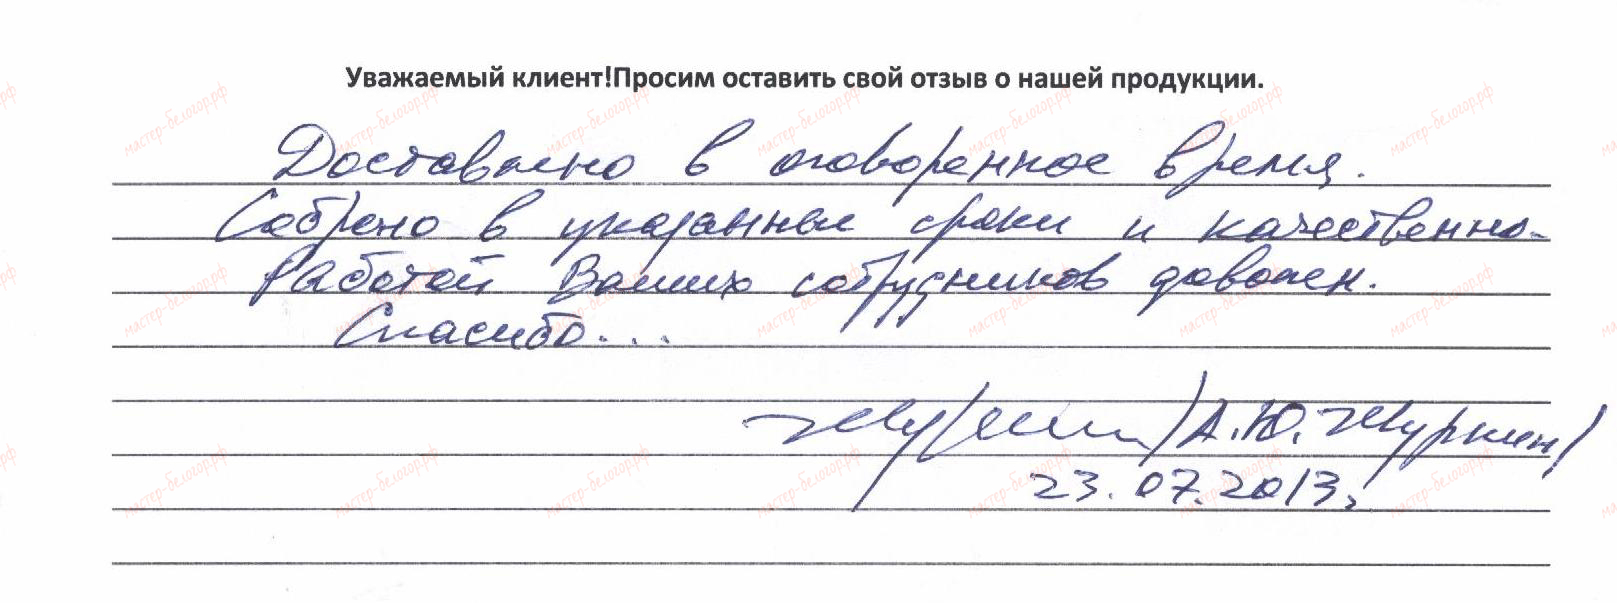 Уважаемый клиент!Просим оставить свой отзыв о нашей продукции.
Доставлено в оговоренное время.
Собрано в указанные сроки и качественно.
Работой Ваших сотрудников доволен.
Спасибо...
/А.Ю. Журкин/
23.07.2013г
мастер-белогор.рф